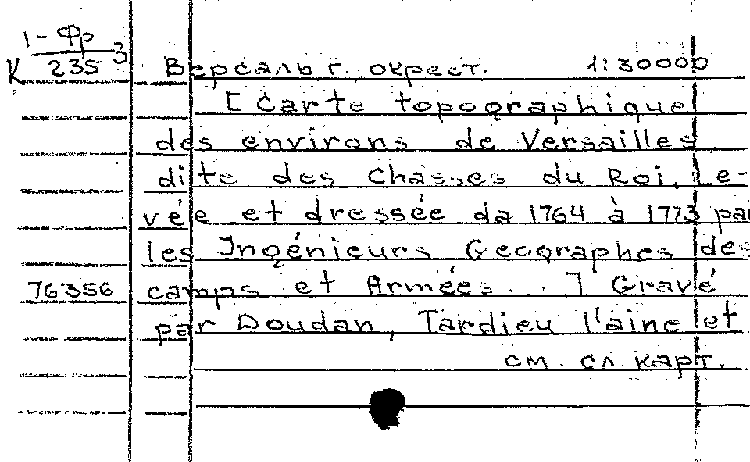 К 1-Фр 3
235
Версаль г. окрест. 1:30000
[Carte topographique
des environs de Versailles
dite des Chasses du Roi, Le-
vée et dressée da 1764 à 1773 par
les Ingénieurs Geographes des
76356 camps et Armées...] Gravé
par Doudan, Tardieu l'aine et
см. сл. карт.